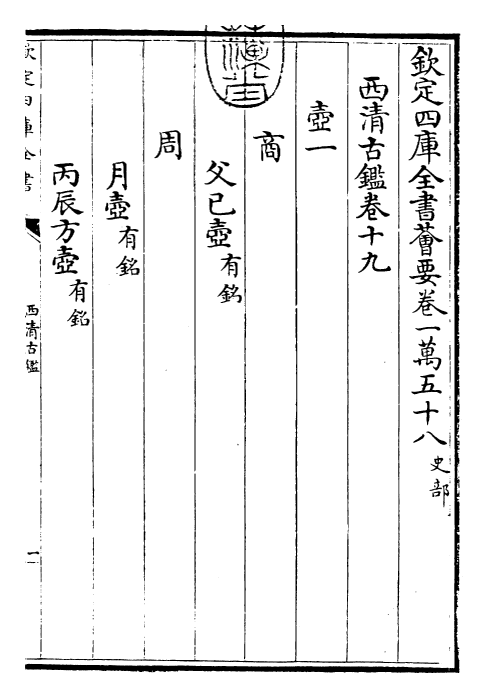 欽定四庫全書薈要卷一萬五十八史部
西清古鑑卷十九
壺一
商
父己壺有銘
周
月壺有銘
丙辰方壺有銘
欽定四庫全書
西清古鑑
一